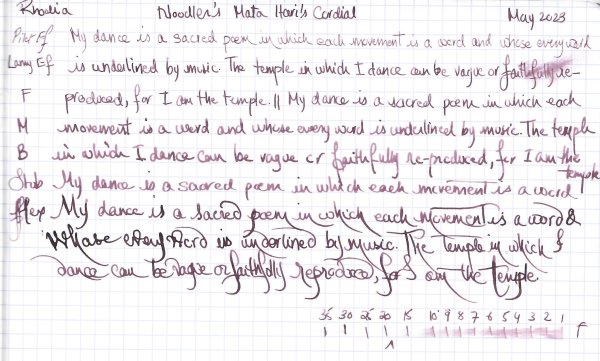 Rhodia Noodler's Mata Hari's Cordial May 2023
Pilot Ef My dance is a sacred poem in which each movement is a word and whose every word
Lamy Ef is underlined by music. The temple in which I dance can be vague or faithfully re-
F produced, for I am the temple. || My dance is a sacred poem in which each
M movement is a word and whose every word is underlined by music. The temple
B in which I dance can be vague or faithfully re-produced, for I am the temple
Stub My dance is a sacred poem in which each movement is a word
flex My dance is a sacred poem in which each movement is a word &
whose every word is underlined by music. The temple in which I
dance can be vague or faithfully reproduced, for I am the temple
35 30 25 20 15 10 9 8 7 6 5 4 3 2 1 F